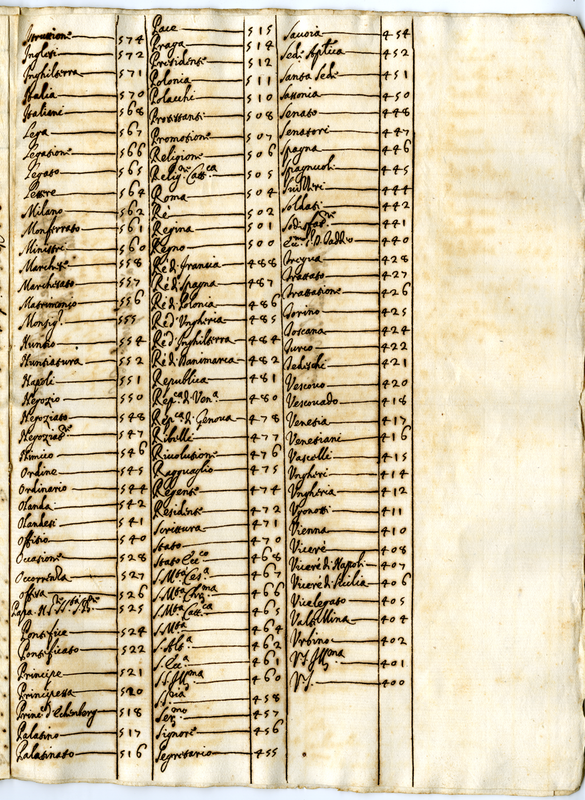 Istruzione 574
Inglesi 572
Inghilterra 571
Italia 570
Italiani 568
Lega 567
Legatione 566
Legato 565
Lettere 564
Milano 562
Monferrato 561
Ministri 560
Marchese 558
Marchesato 557
Matrimonio 556
Monsig.r 555
Nuntio 554
Nuntiatura 552
Napoli 551
Negozio 550
Negoziato 548
Negoziat.e 547
Nemico 546
Ordine 545
Ordinario 544
Olanda 542
Olandesi 541
Offitio 540
Occasione 528
Occorrenza 527
Offiva 526
Papa. N. S. 525
Pontefice 524
Pontificato 522
Principe 521
Principessa 520
Princ.e d'Echenberg 518
Palatino 517
Palatinato 516
Pace 515
Praga 514
Presidente 512
Polonia 511
Polacchi 510
Protestanti 508
Promotione 507
Religione 506
Relig.ne Catt.ca 505
Roma 504
Rè 502
Regina 501
Regno 500
Rè di Francia 488
Rè di Spagna 487
Rè di Polonia 486
Rè d'Ungheria 485
Rè d'Inghilterra 484
Rè di Danimarca 482
Republica 481
Rep.ca di Ven.a 480
Rep.ca di Genova 478
Ribelli 477
Risolutione 476
Ragguaglio 475
Regente 474
Residente 472
Scrittura 471
Stato 470
Stato Ecc.co 468
S. M.tà Ces.a 467
S. M.tà Chr.ma 466
S. M.tà Catt.ca 465
S. M.tà 464
S. Alt.a 462
S. Ecc.a 461
S. S. Ill.ma 460
458
Ser.mo 457
Signore 456
Segretario 455
Savoia 454
Sede Ap.lica 452
Santa Sede 451
Sassonia 450
Senato 448
Senatori 447
Spagna 446
Spagnuoli 445
Suizzeri 444
Soldati 442
Sodisfat.ne 441
440
Tregua 428
Trattato 427
Trattatione 426
Torino 425
Toscana 424
Turco 422
Tedeschi 421
Vescovo 420
Vescovado 418
Venetia 417
Venetiani 416
Vascelli 415
Ungheri 414
Ungheria 412
Ugonotti 411
Vienna 410
Viceré 408
Viceré di Napoli 407
Viceré di Sicilia 406
Vicelegato 405
Valtellina 404
Urbino 402
V. S. Ill.ma 401
V. S. 400